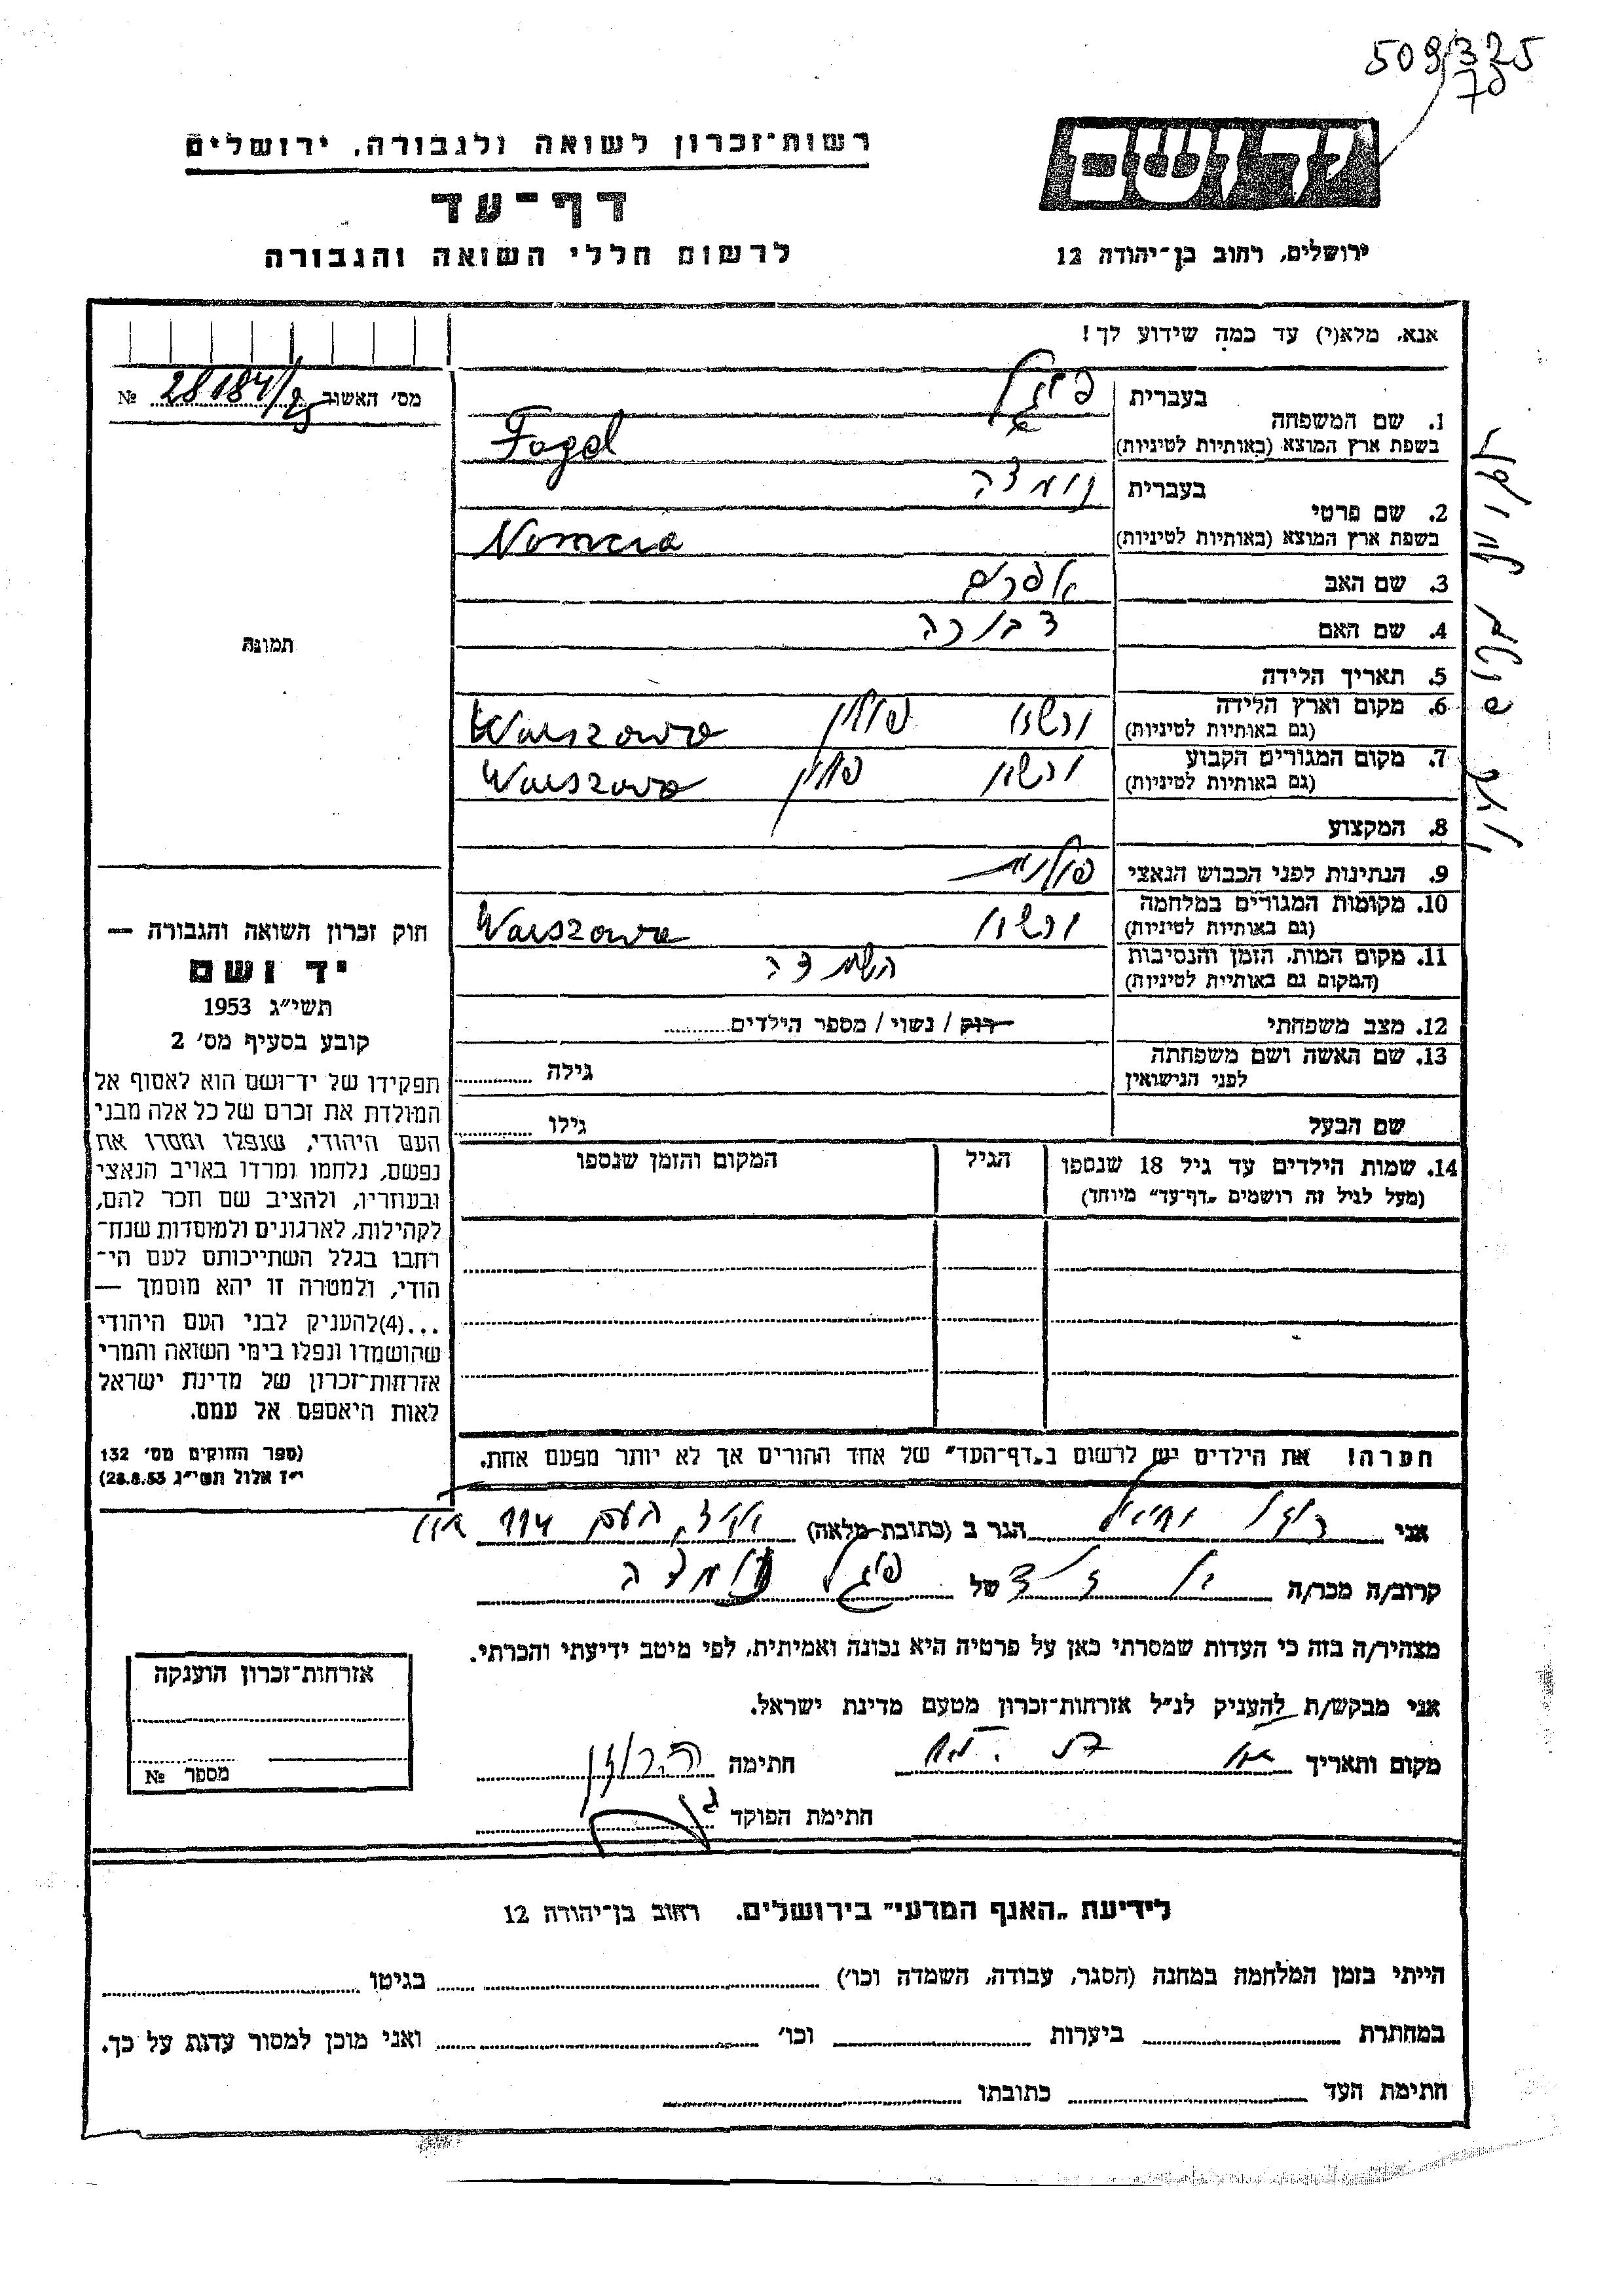 509/325
70
רשות־זכרון לשואה ולגבורה, ירושלים
דף־עד
לרשום חללי השואה והגבורה
יד ושם
ירושלים, רחוב בן־יהודה 12
אנא, מלא(י) עד כמה שידוע לך!
מס׳ האשוב 28184/25 №
1. שם המשפחה
בעברית פוגל
בשפת ארץ המוצא (באותיות לטיניות) Fogel
2. שם פרטי
בעברית
בשפת ארץ המוצא (באותיות לטיניות)
3. שם האב אפרים
4. שם האם דבורה
5. תאריך הלידה
6. מקום וארץ הלידה ורשה פולין Warszawa
(גם באותיות לטיניות)
7. מקום המגורים הקבוע ורשה פולין Warszawa
(גם באותיות לטיניות)
8. המקצוע
9. הנתינות לפני הכבוש הנאצי פולנית
10. מקומות המגורים במלחמה ורשה Warszawa
(גם באותיות לטיניות)
11. מקום המות, הזמן והנסיבות השמדה
(המקום גם באותיות לטיניות)
12. מצב משפחתי רוק / נשוי / מספר הילדים
13. שם האשה ושם משפחתה
לפני הנישואין
גילה
שם הבעל גילו
14. שמות הילדים עד גיל 18 שנספו
(מעל לגיל זה רושמים „דף־עד” מיוחד)
הגיל
המקום והזמן שנספו
הערה! את הילדים יש לרשום ב„דף־העד” של אחד ההורים אך לא יותר מפעם אחת.
תמונה
חוק זכרון השואה והגבורה —
יד ושם
תשי״ג 1953
קובע בסעיף מס׳ 2
תפקידו של יד־ושם הוא לאסוף אל
המולדת את זכרם של כל אלה מבני
העם היהודי, שנפלו ומסרו את
נפשם, נלחמו ומרדו באויב הנאצי
ובעוזריו, ולהציב שם וזכר להם,
לקהילות, לארגונים ולמוסדות שנח־
רבו בגלל השתייכותם לעם הי־
הודי, ולמטרה זו יהא מוסמך —
...(4)להעניק לבני העם היהודי
שהושמדו ונפלו בימי השואה והמרי
אזרחות־זכרון של מדינת ישראל
לאות היאספם אל עמם.
(ספר החוקים מס׳ 132
י״ז אלול תשי״ג 28.8.53)
אני הגר ב (כתובת מלאה) העם
קרוב/ה מכר/ה של פוגל
מצהיר/ה בזה כי העדות שמסרתי כאן על פרטיה היא נכונה ואמיתית, לפי מיטב ידיעתי והכרתי.
אני מבקש/ת להעניק לנ״ל אזרחות־זכרון מטעם מדינת ישראל.
מקום ותאריך חתימה
חתימת הפוקד
אזרחות־זכרון הוענקה
מספר №
לידיעת „האגף המדעי” בירושלים. רחוב בן־יהודה 12
הייתי בזמן המלחמה במחנה (הסגר, עבודה, השמדה וכו׳) בגיטו
במחתרת ביערות וכו׳ ואני מוכן למסור עדות על כך.
חתימת העד כתובתו